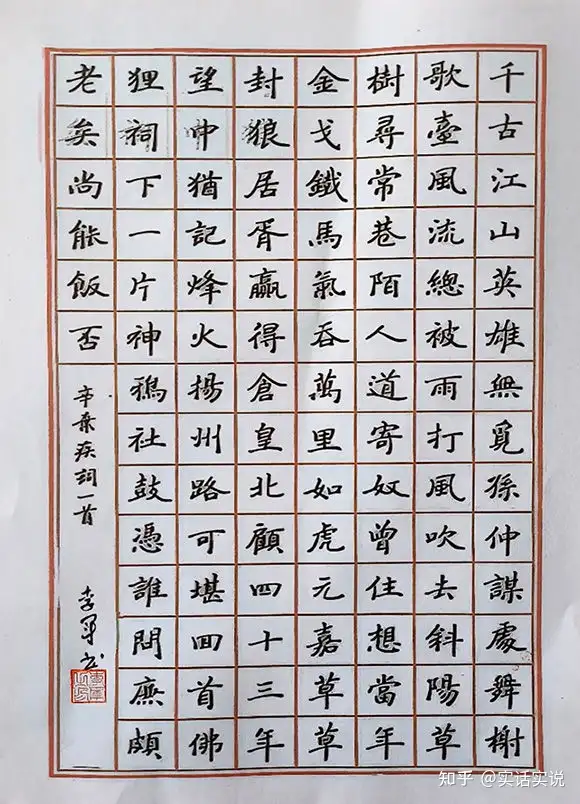 千古江山英雄無覓孫仲謀處舞榭
歌臺風流總被雨打風吹去斜陽草
樹尋常巷陌人道寄奴曾住想當年
金戈鐵馬氣吞萬里如虎元嘉草草
封狼居胥贏得倉皇北顧四十三年
望中猶記烽火揚州路可堪囬首佛
狸祠下一片神鴉社鼓憑誰問廉頗
老矣尚能飯否
辛棄疾詞一首
李軍书
知乎 @实话实说